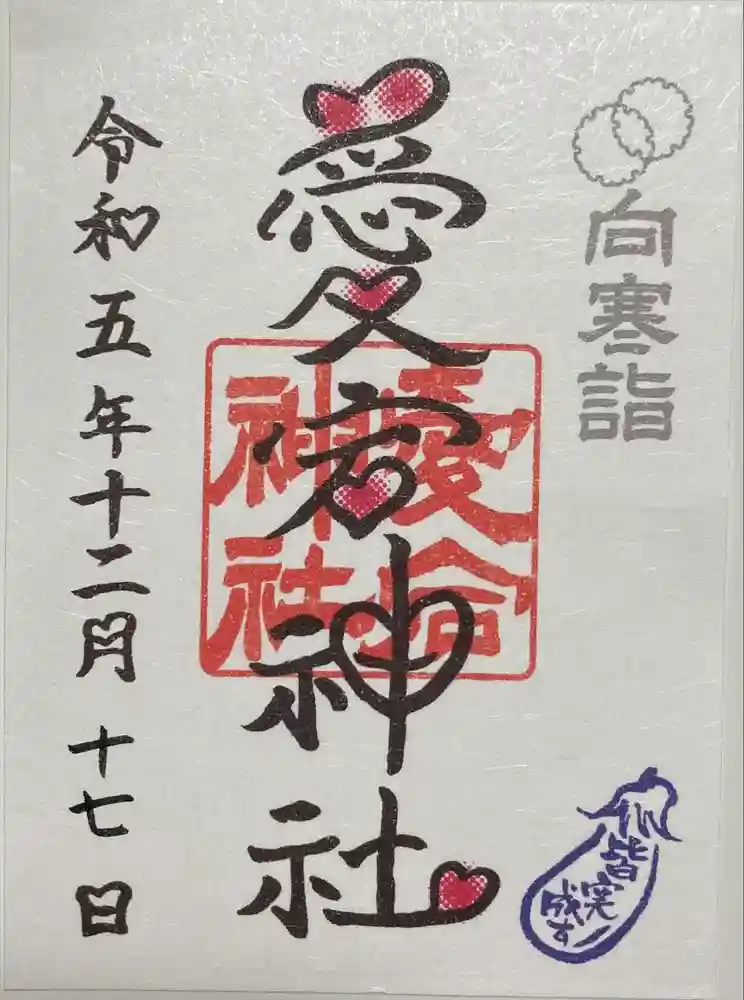 向寒詣
愛宕神社
愛宕
神社
令和五年十二月十七日
皆